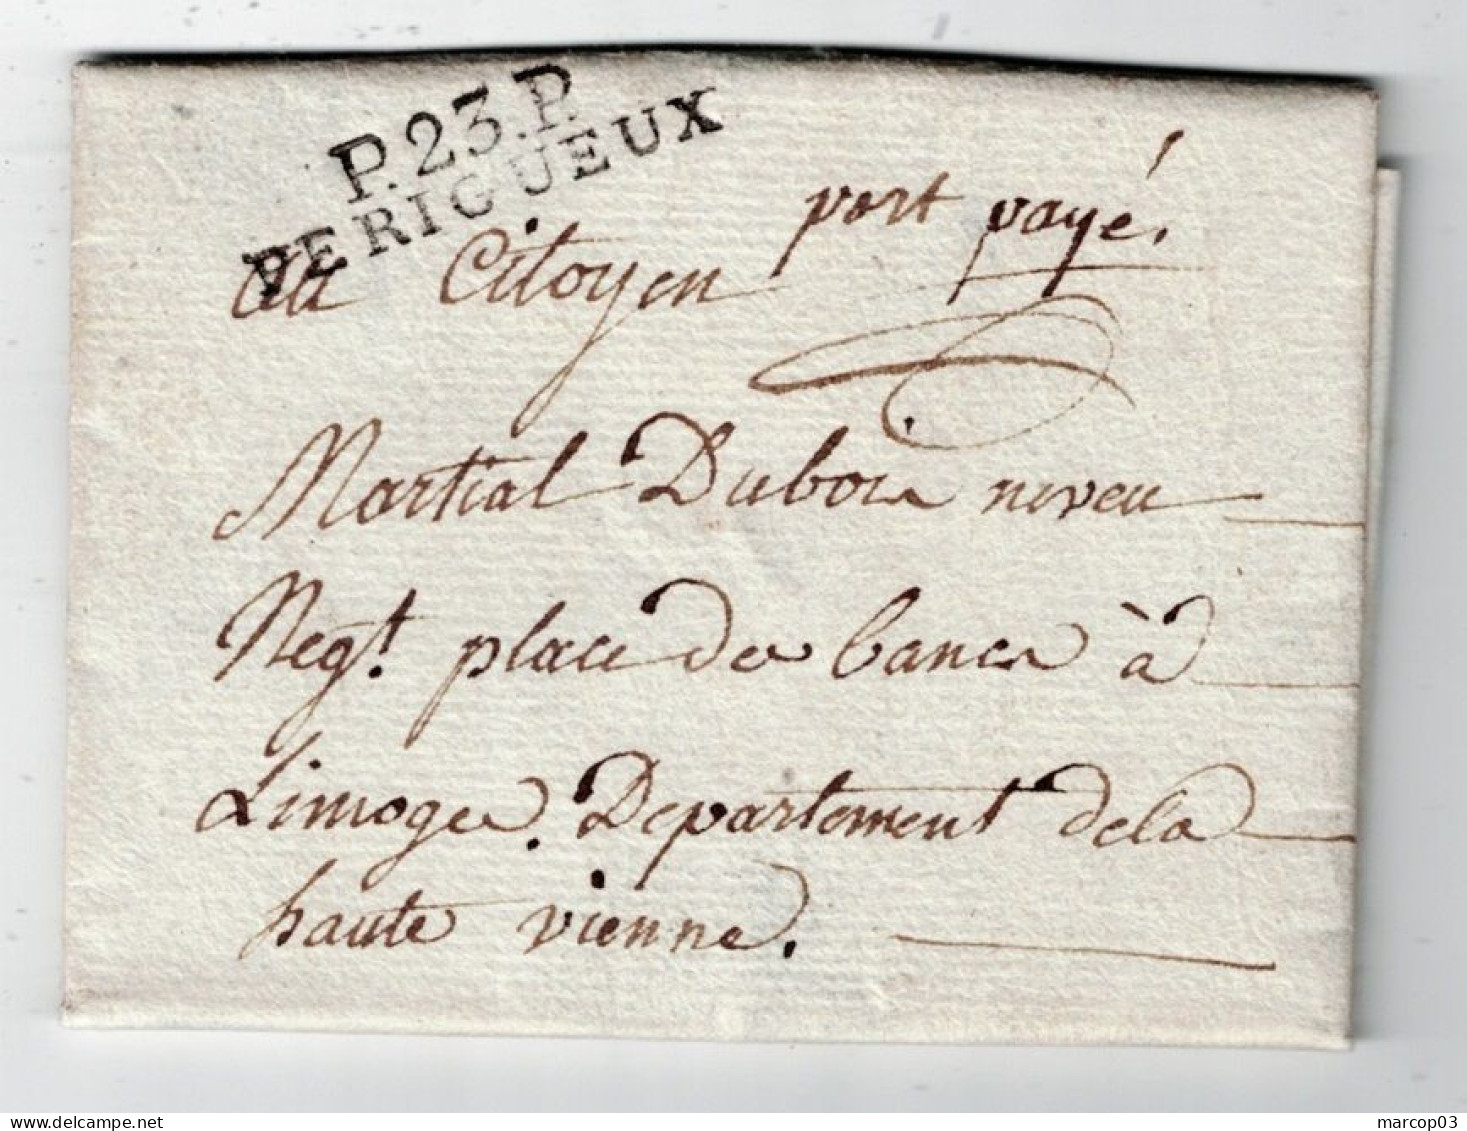 P.23.P.
PERIGUEUX
port payé.
Au Citoyen
Martial Dubois neveu
Negt. place des bancs à
Limoges. Departement de la
haute vienne.
marcop03